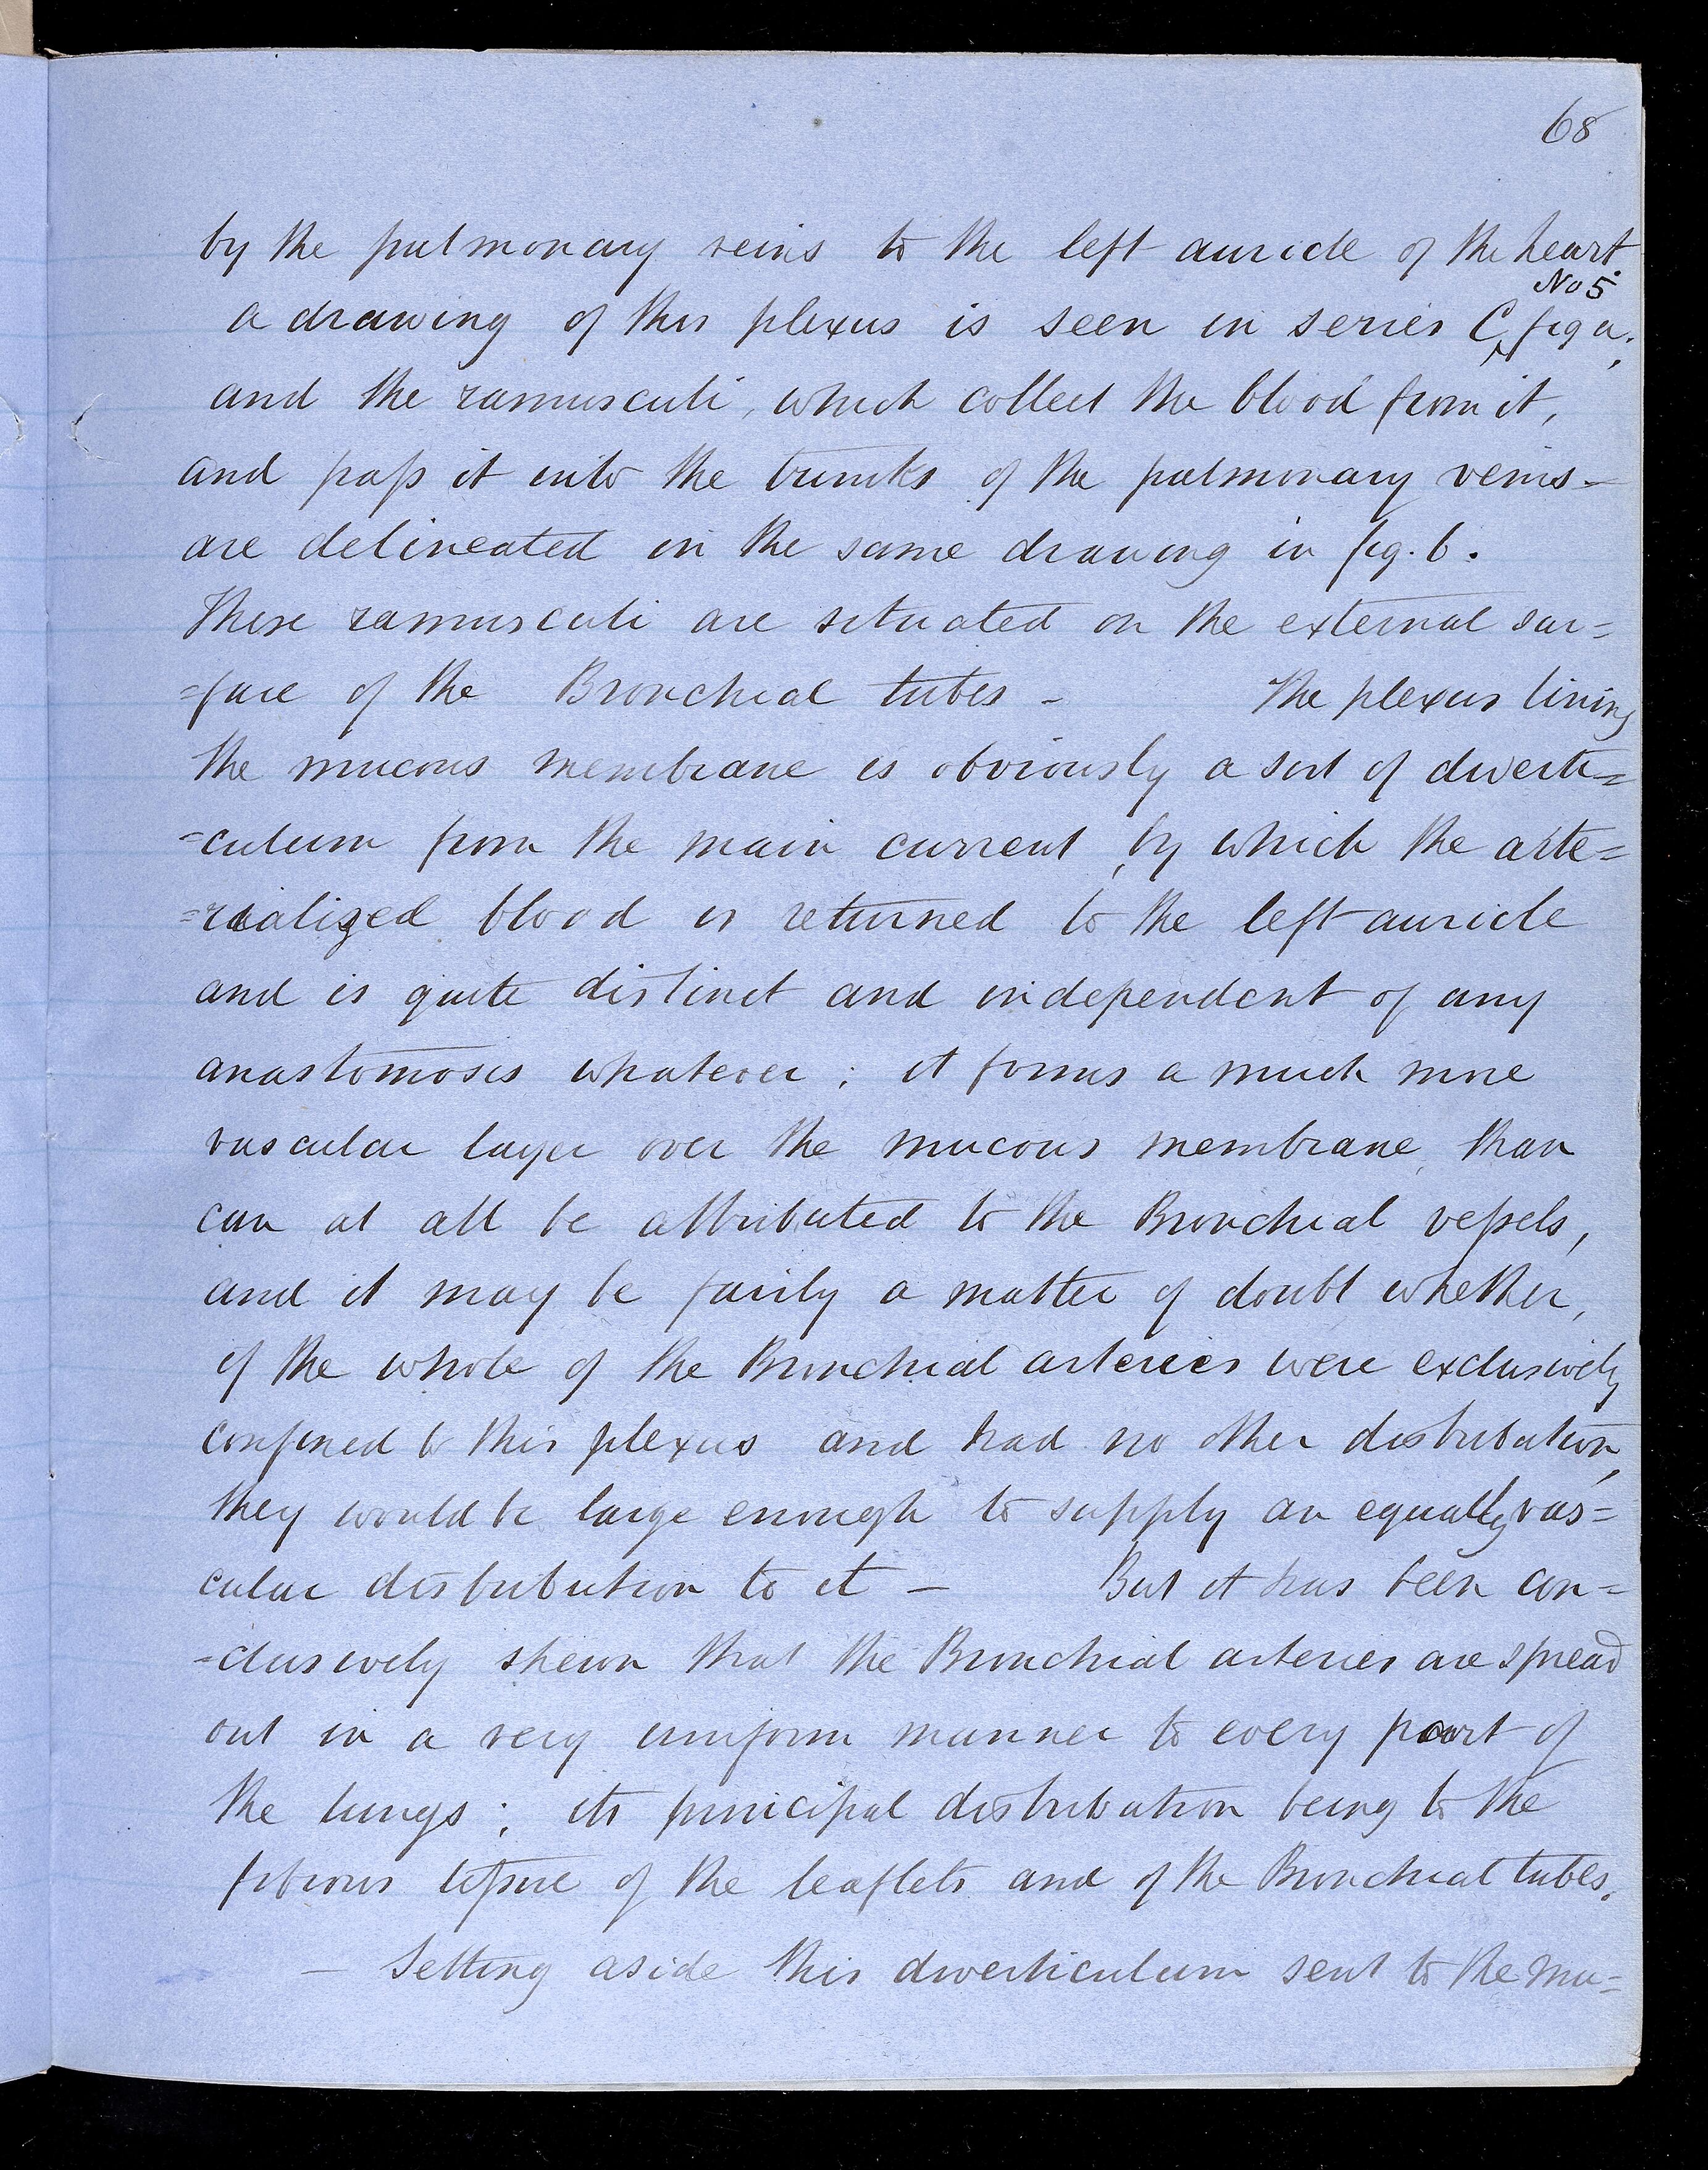 68
by the pulmonary veins to the left auricle of the heart.
No 5
a drawing of this plexus is seen in series C, fig a;
and the ramusculi, which collect the blood from it,
and pass it into the trunks of the pulmonary veins -
are delineated in the same drawing in fig. b.
These ramusculi are situated on the external sur=
=face of the Bronchial tubes - The plexus lining
the mucous membrane is obviously a sort of diverti=
=culum from the main current, by which the arte=
=rialized blood is returned to the left auricle
and is quite distinct and independent of any
anastomosis whatever; it forms a much more
vascular layer over the mucous membrane, than
can at all be attributed to the Bronchial vessels,
and it may be fairly a matter of doubt whether,
if the whole of the Bronchial arteries were exclusively
confined to this plexus and had no other distribution,
they would be large enough to supply an equally vas=
cular distribution to it - But it has been con=
=clusively shewn that the Bronchial arteries are spread
out in a very uniform manner to every part of
the lungs; its principal distribution being to the
fibrous tissue of the leaflets and of the Bronchial tubes.
- Setting aside this diverticulum sent to the mu=